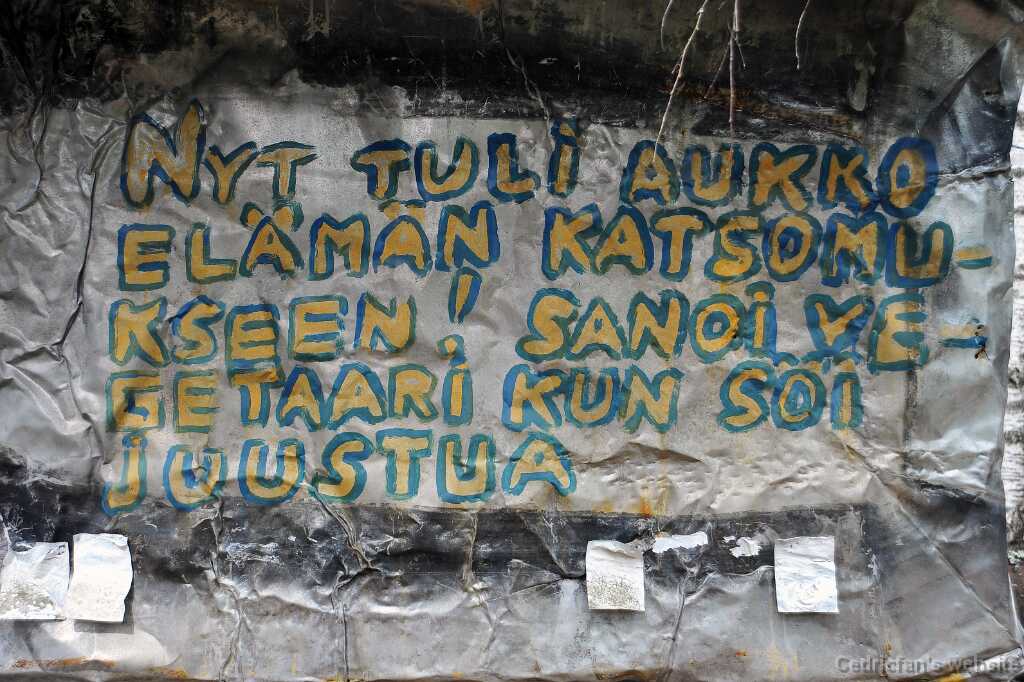 NYT TULI AUKKO
ELÄMÄN KATSOMU-
KSEEN, SANOI VE-
GETAARI KUN SÖI
JUUSTUA
Cedricfan's website